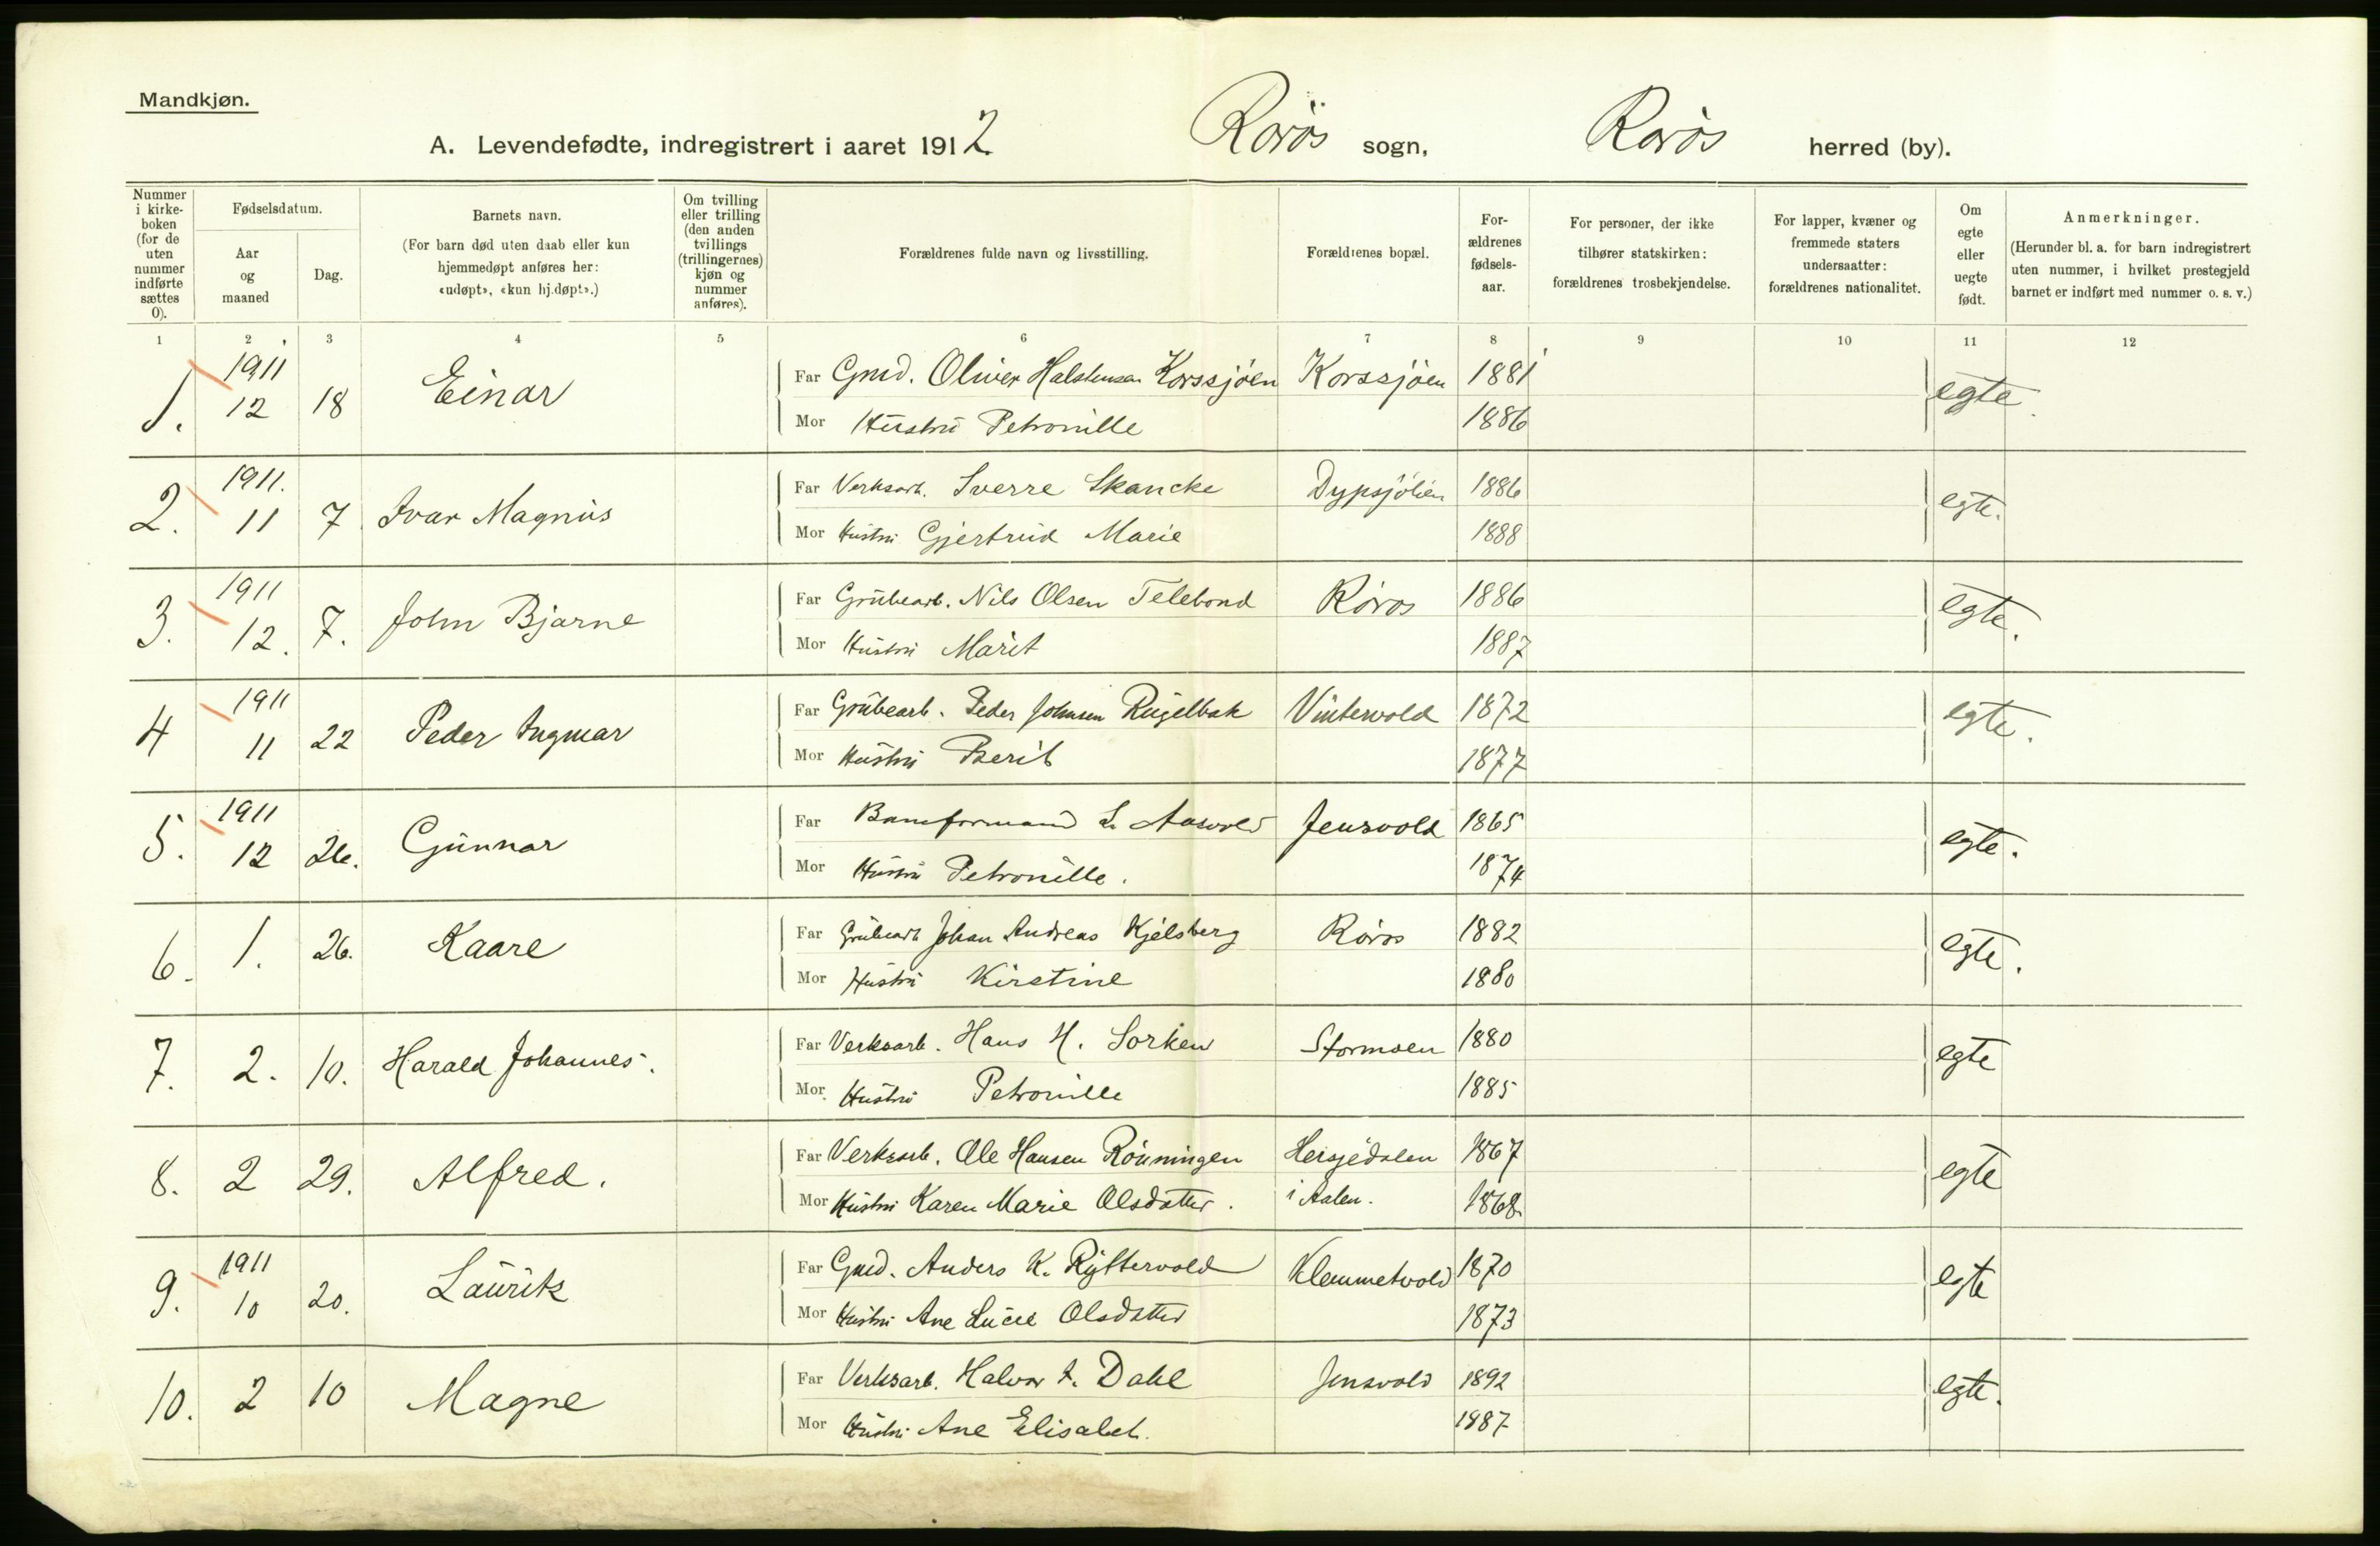 Mandkjøn.
A. Levendefødte, indregistrert i aaret 1912. Rørøs sogn, Rørøs herred (by).
Nummer i kirke-boken (for de uten nummer indførte sættes 0).
Fødselsdatum.
Aar og maaned
Dag.
Barnets navn.
(For barn død uten daab eller kun hjemmedøpt anføres her: «udøpt», «kun hj.døpt».)
Om tvilling eller trilling (den anden tvillings (trillingernes) kjøn og nummer anføres).
Forældrenes fulde navn og livsstilling.
Forældrenes bopæl.
For-ældrenes fødsels-aar.
For personer, der ikke tilhører statskirken: forældrenes trosbekjendelse.
For lapper, kvæner og fremmede staters undersaatter: forældrenes nationalitet.
Om egte eller uegte født.
Anmerkninger.
(Herunder bl. a. for barn indregistrert uten nummer, i hvilket prestegjeld barnet er indført med nummer o. s. v.)
1 2 3 4 5 6 7 8 9 10 11 12
1. 1911 12 18 Einar Far Gmd. Oliver Halstensen Korssjøen Korssjøen 1881 egte.
Mor Hustru Petronille 1886
2. 1911. 11 7 Ivar Magnus Far Verksarb. Sverre Skancke Dypsjølien 1886 egte.
Mor Hustru Gjertrud Marie 1888
3. 1911 12. 7. John Bjarne Far Grubearb. Nils Olsen Telebond Røros 1886 egte.
Mor Hustru Marit 1887
4 1911 11 22 Peder Ingmar Far Grubearb. Peder Johnsen Rugelbak Vintervold 1872 egte.
Mor Hustru Berit 1877
5. 1911 12 26. Gunnar Far Baneformand Aasvold Jensvold 1865 egte.
Mor Hustru Petronille. 1874
6. 1. 26. Kaare Far Grubearb Johan Andreas Kjelsberg Røros 1882 egte.
Mor Hustru Kirstine 1880
7. 2. 10. Harald Johannes. Far Verksarb. Hans H. Sorken Stormoen 1880 egte
Mor Hustru Petronille 1885
8. 2 29. Alfred. Far Verksarb. Ole Hansen Rønningen Hersjedalen 1867 egte
Mor Hustru Karen Marie Olsdatter. i Aalen. 1868
9. 1911 10 20. Lauritz Far Gmd. Anders K. Ryttervold Klemmetvold 1870 egte
Mor Hustru Ane Lucie Olsdatter 1873
10. 2 10 Magne Far Verksarb. Halvor Dahl Jensvold 1892 egte.
Mor Hustru Ane Elisabet. 1887